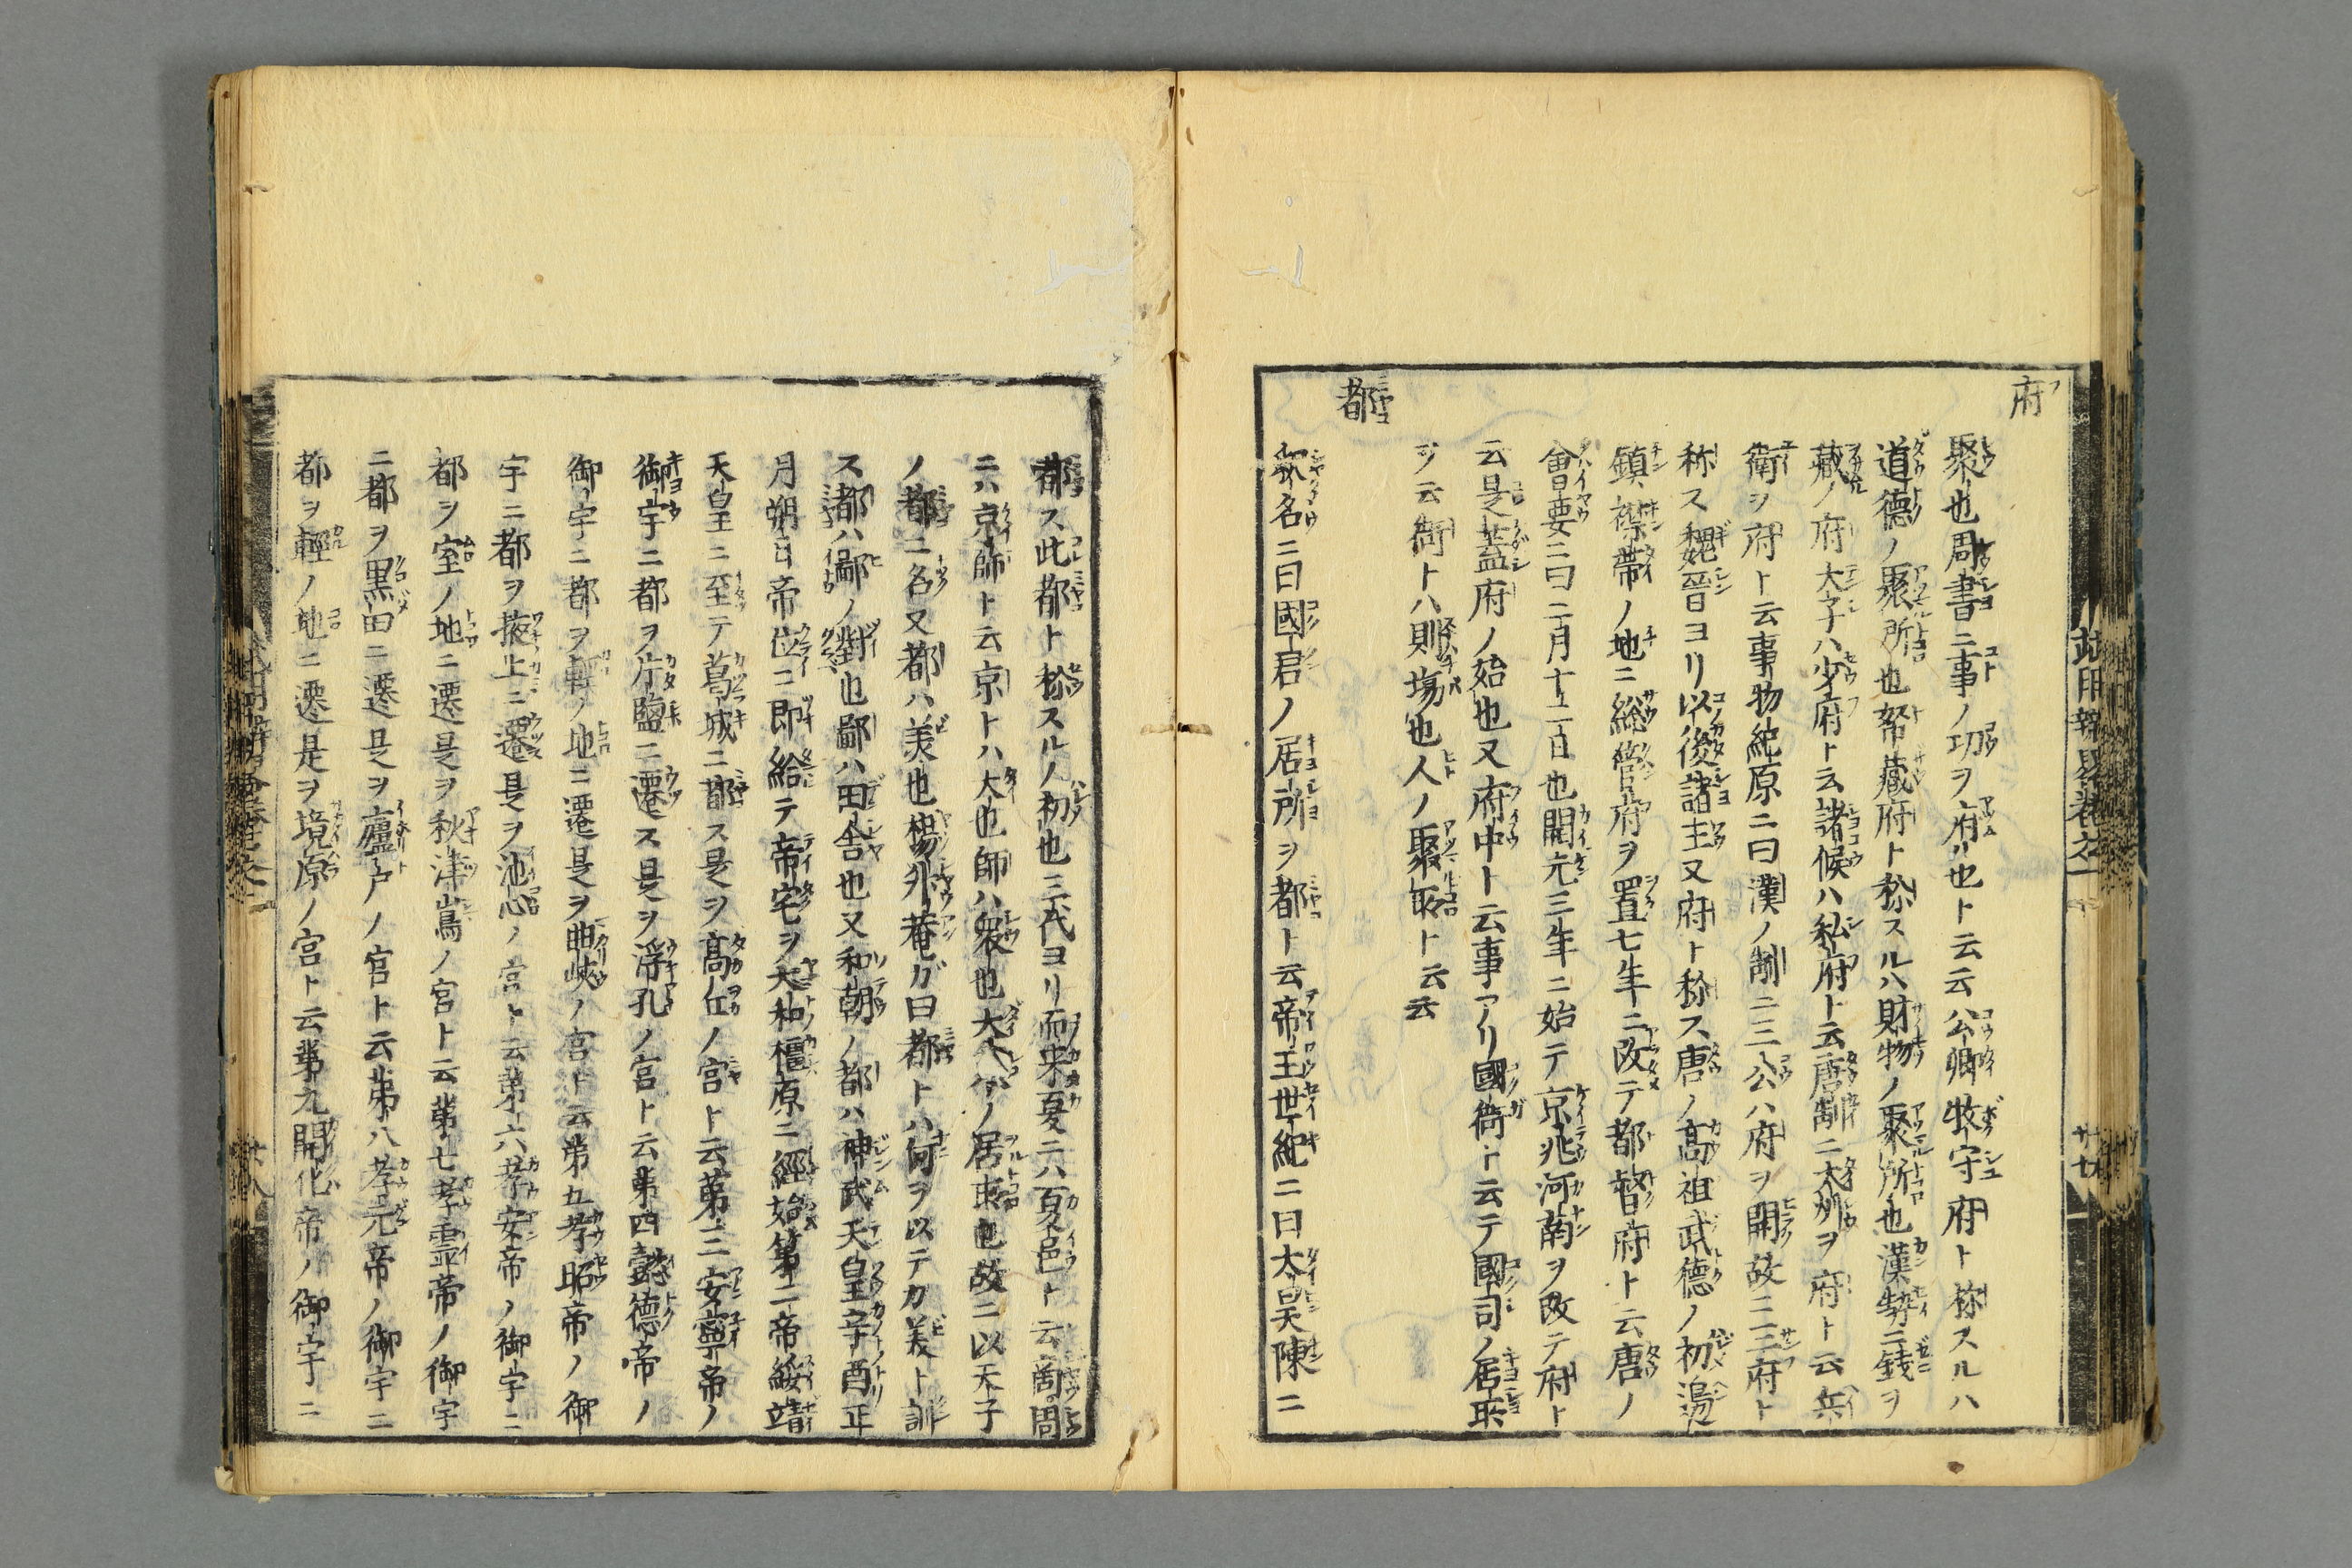 府
聚也周書ニ事ノ功ヲ府ル也ト云云公卿牧守府ト称スルハ
道德ノ聚所也帑藏府ト称スルハ財物ノ聚所也漢ノ勢ニ錢ヲ
藏ノ府大子ハ少府ト云諸候ハ私府ト云唐制ニ大州ヲ府ト云兵
衛ヲ府ト云事物紀原ニ曰漢ノ制ニ三公ハ府ヲ開故ニ三府ト
称ス魏晉ヨリ以後諸主又府ト称ス唐ノ髙祖武德ノ初邊
鎮襟帶ノ地ニ総管府ヲ置七年ニ改テ都督府ト云唐ノ
會要ニ曰二月十二日也開元三年ニ始テ京兆河南ヲ改テ府ト
云是蓋府ノ始也又府中ト云事アリ國衙ト云テ國司ノ居所
ヲ云衙トハ則塲也人ノ聚所ト云云
都
釈名ニ曰國君ノ居所ヲ都ト云帝王世紀ニ曰太昊陳ニ
都ス此都ト称スルノ初也三代ヨリ而来夏ニハ夏邑ト云商周
ニハ京師ト云京トハ大也師ハ衆也大人衆ノ居所也故ニ以天子
ノ都ニ名又都ハ美也楊升菴ガ曰都トハ何ヲ以テカ美ト訓
ス都ハ鄙ノ對也鄙ハ田舎也又和朝ノ都ハ神武天皇辛酉正
月朔日帝位ニ即給テ帝宅ヲ大和橿原ニ經始第二帝綏靖
天皇ニ至テ葛城ニ都ス是ヲ髙丘ノ宮ト云第三安寧帝ノ
御宇ニ都ヲ片鹽ニ遷ス是ヲ浮孔ノ宮ト云第四懿德帝ノ
御宇ニ都ヲ軽ノ地ニ遷是ヲ曲峽ノ宮ト云第五孝昭帝ノ御
宇ニ都ヲ掖上ニ遷是ヲ池心ノ宮ト云第六孝安帝ノ御宇ニ
都ヲ室ノ地ニ遷是ヲ秋津嶌ノ宮ト云第七孝霊帝ノ御宇
ニ都ヲ黒田ニ遷是ヲ廬戸ノ宮ト云第八孝元帝ノ御宇ニ
都ヲ輕ノ地ニ遷是ヲ境原ノ宮ト云第九開化帝ノ御宇ニ